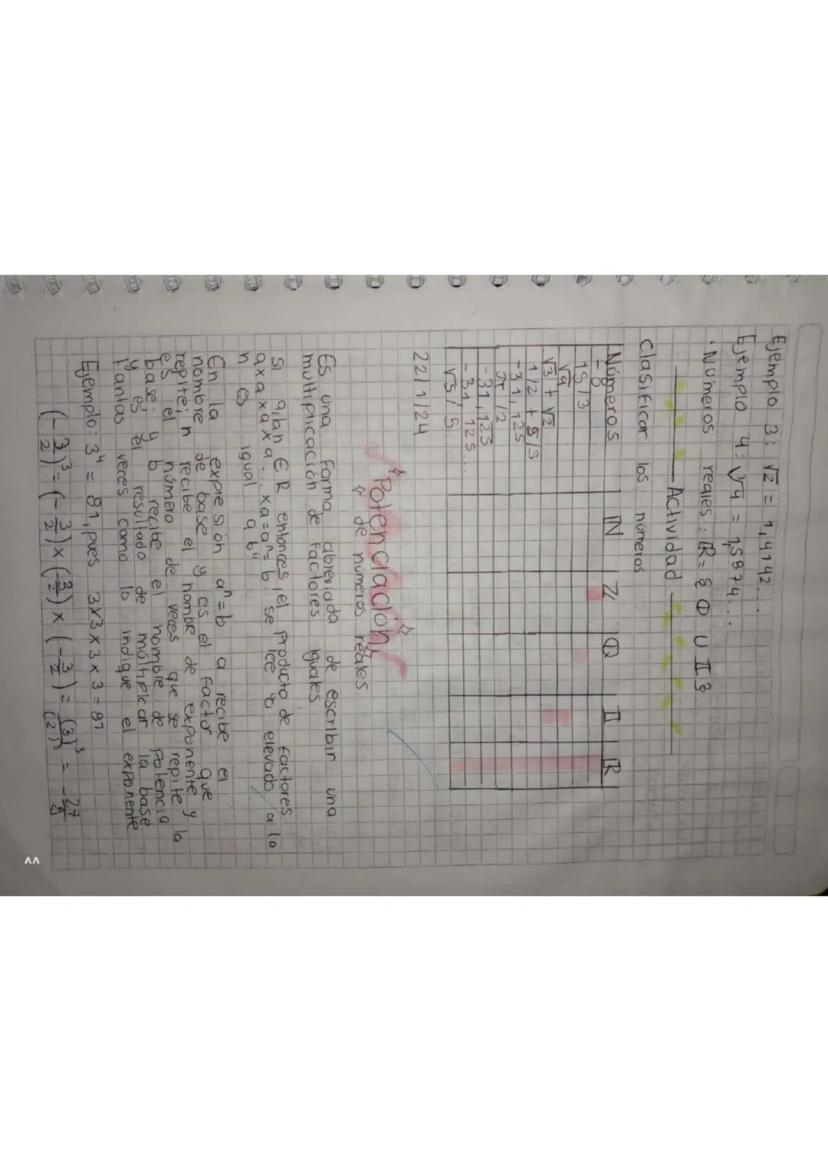 Ejemplo 3: √2 = 1,4142...
Ejemplo 4: √4 = 1,5874...
· Números reales: R = { Q U I }
Actividad
Clasificar los números
Números N Z Q I R
-8
15/3
√9
√3 + √2
1/2 + 5/3
-31,125
3π/2
-31,125
-3,1 125...
√5/5
22/1/24
Potenciación
de números reales
Es una forma abreviada de escribir una
multiplicación de factores iguales
Si a,b,n ∈ R entonces, el producto de factores
a x a x a x a... x a = aⁿ = b se lee "a elevado a la
n es igual a b"
En la expresión aⁿ = b a recibe el
nombre de base y es el factor que
repite; n recibe el nombre de exponente y
es el número de veces que se repite la
base; y b recibe el nombre de potencia
y es el resultado de múltiplicar la base
tantas veces como lo indique el exponente
Ejemplo: 3⁴ = 81, pues 3x3x3x3 = 81
(-3/2)³ = (-3/2) x (-3/2) x (-3/2) = (3)³/(2)³ = -27/8
11